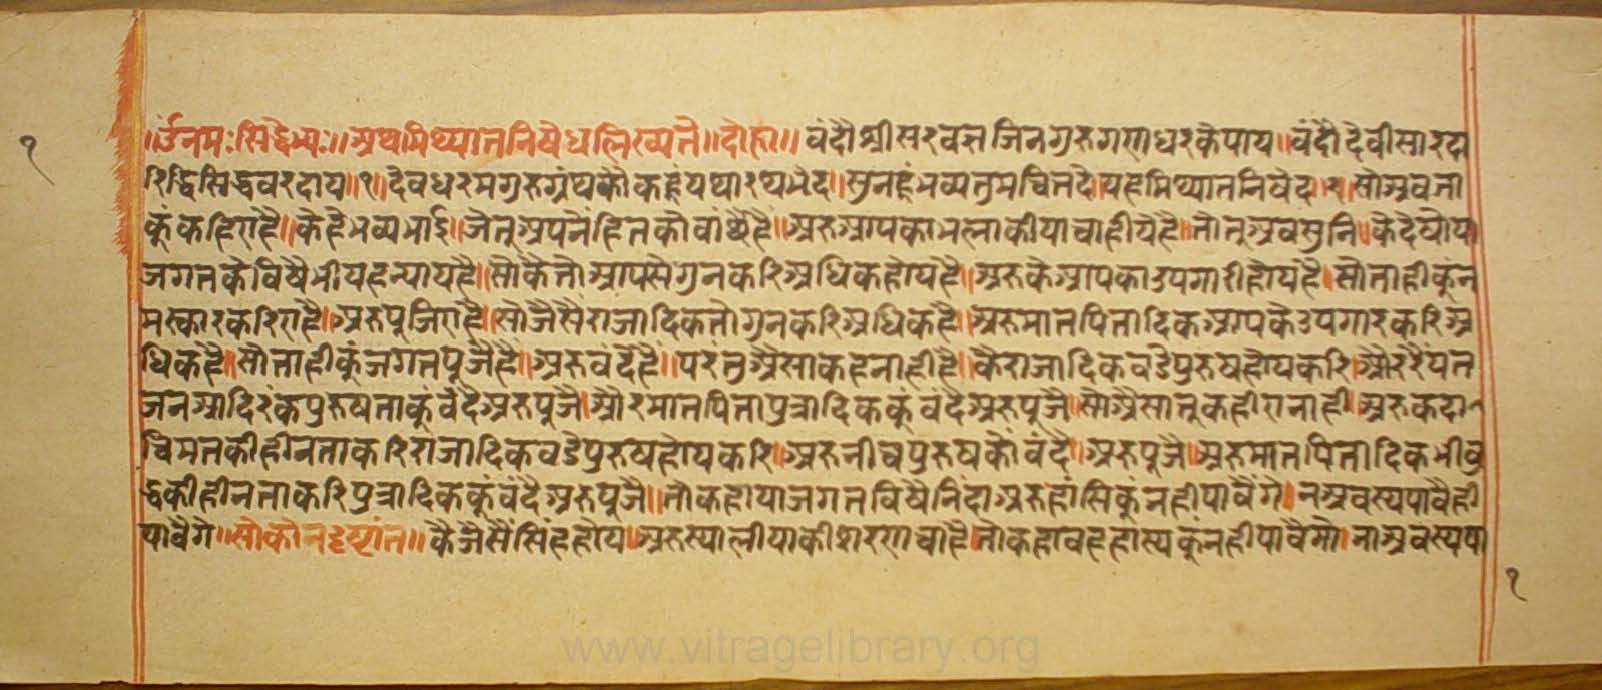 १
॥ॐनमःसिद्धेभ्यः॥अथमिथ्यातनिषेधलिख्यते॥दोहा॥वंदौश्रीसरवज्ञजिनगुरुगणधरकेपाय॥वंदौदेवीसारदा
रिद्धिसिद्धवरदाय॥१॥देवधरमगुरुग्रंथकौकहूंयथारथभेद॥सुनहूंभव्यतुमचितदे॥यहमिथ्यातनिषेद॥२॥सोअब
कूंकहिएहै॥कैहेभव्यभाई॥जेतूअपनेंहितकौवांछैहै॥अरुआपकाभलाकीयाचाहीयेहै॥तौतूअवसुनि॥
जगतकेविषैभीयहन्यायहै॥सोकैतोआपसेगुनकरिअधिकहोयहै॥अरुकेआपकाउपगारीहोयहै॥सोताहीकूंन
मस्कारकरिएहै॥अरुपुजिएहै॥सोजैसैराजादिकतोगुनकरिअधिकहै॥अरुमातपितादिकआपकेउपगारकरिअ
धिकहै॥सोताहीकूंजगतपूजैहै॥अरुवंदैहै॥परंतुअैसाकहनाहीहै॥कैराजादिकवडेपुरुषहोयकरि॥औररैयत
जनआदिरंकपुरुषताकूंवंदैअरुपुजै॥औरमातपितापुत्रादिककूंवंदैअरुपुजै॥सोअैसातूकहीएनाही॥अरुकदा
चिमतकीहीनताकरिराजादिकवडेपुरुषहोयकरि॥अरुनीचपुरुषकौंवंदै॥अरुपुजै॥अरुमातपितादिकभीबु
द्धकीहीनताकरिपुत्रादिककूंवंदैअरुपुजै॥तौकहोयाजगतविषैनिंदाअरुहांसिकूंनहीपावैंगे॥नअवस्यपावैही
पावैगे॥सोकौनदृष्टांत॥कैजैसैंसिंहहोय॥अरुस्यालीयाकीशरणचाहै॥तौकहावहहास्यकूंनहीपावैगो॥नाअवस्यपा
१
www.vitragelibrary.org